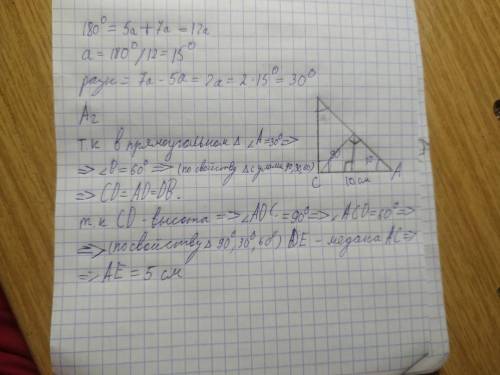 180° = 5a + 7a = 12a
a = 180°/12 = 15°
разн = 7a - 5a = 2a = 2·15° = 30°
А2
т.к в прямоугольном Δ ∠A=30° =>
=> ∠B=60° => (по свойству Δ с углами 90,30,60)
=> CD=AD=DB.
т.к CD - высота => ∠ADC = 90° => ∠ACD=60° =>
=> (по свойству Δ 90°,30°,60°) DE - медиана AC =>
=> AE = 5 см
C 10 см A